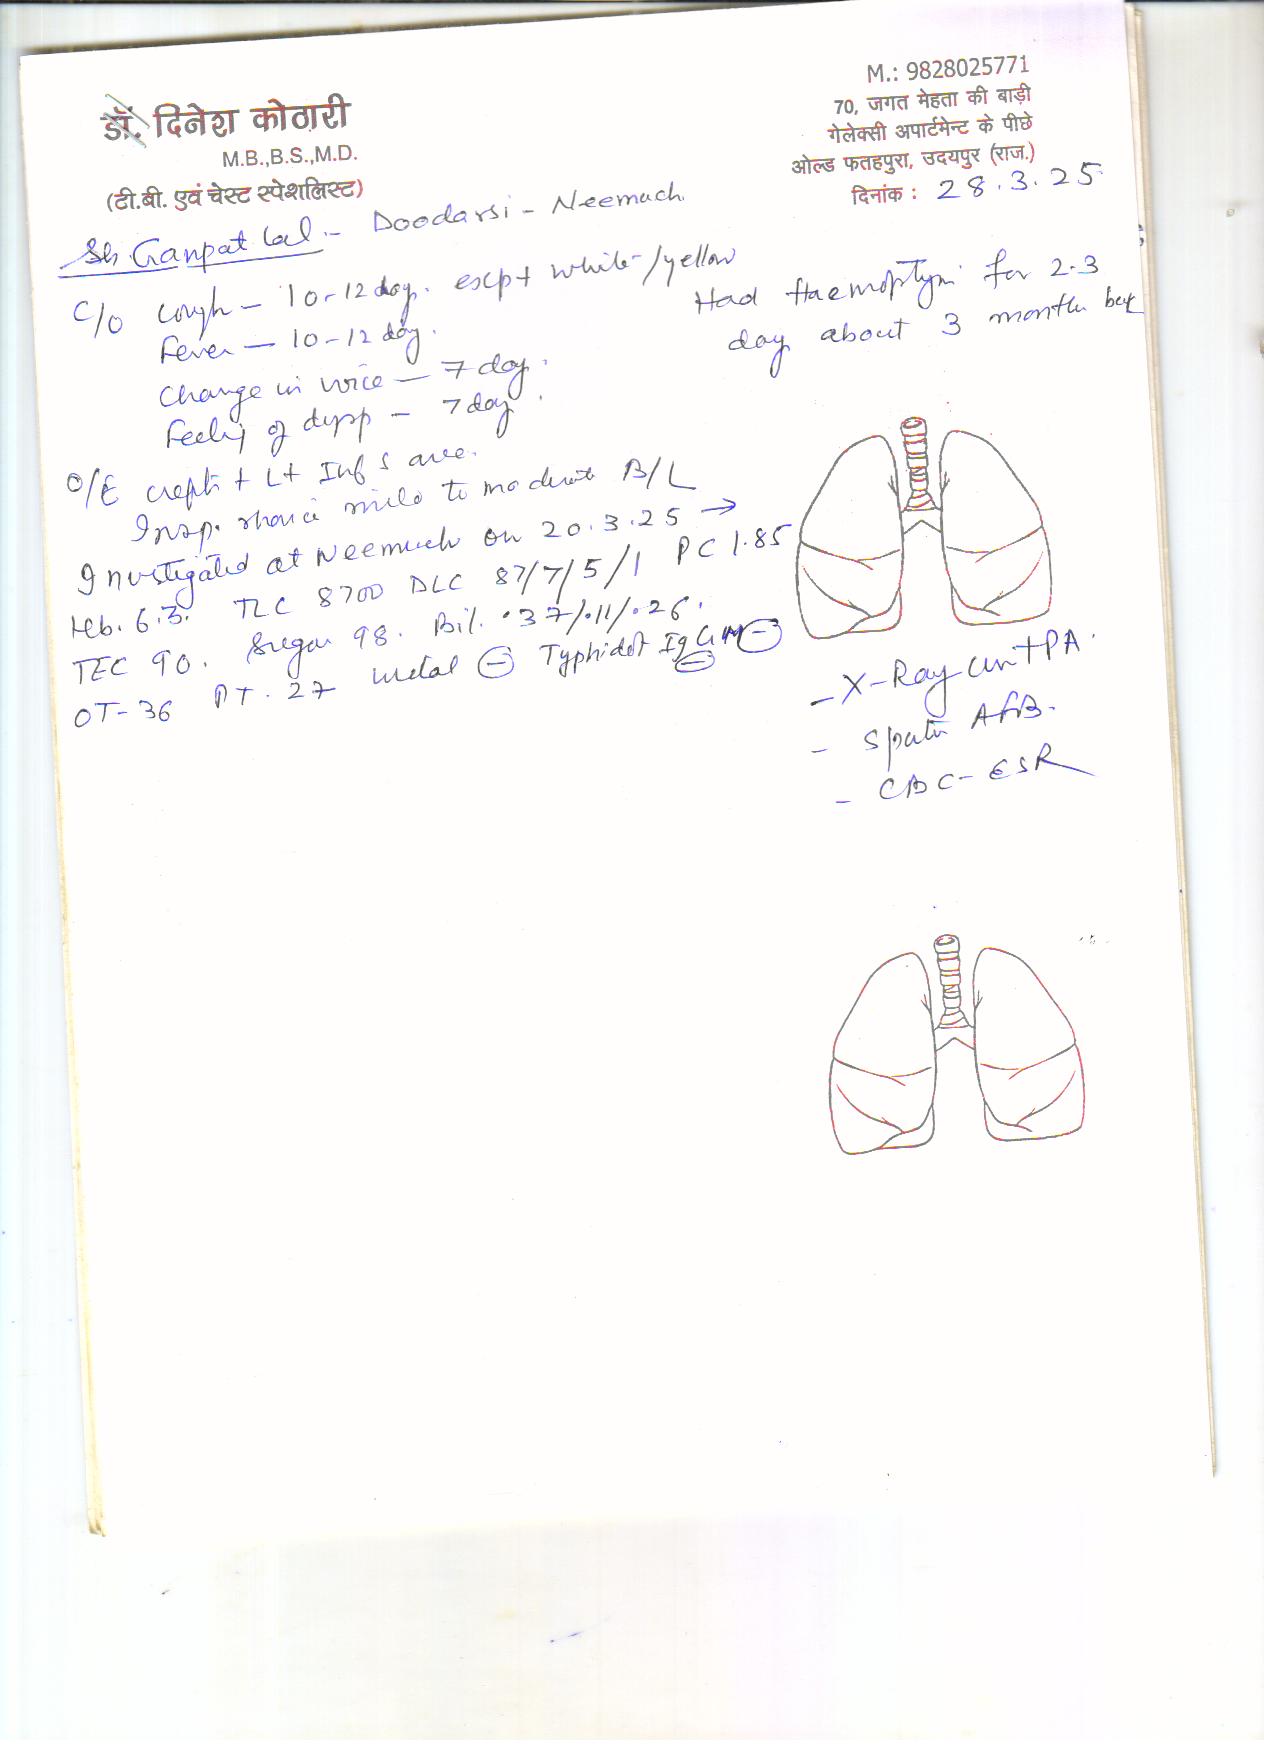 डॉ. दिनेश कोठारी
M.B.,B.S.,M.D.
(टी.बी. एवं चेस्ट स्पेशलिस्ट)
M.: 9828025771
70, जगत मेहता की बाड़ी
गेलेक्सी अपार्टमेन्ट के पीछे
ओल्ड फतहपुरा, उदयपुर (राज.)
दिनांक : 28.3.25
Sh. Ganpat Lal - Doodarsi - Neemuch
C/O Cough - 10-12 day. white/yellow
Fever - 10-12 day.
Change in voice - 7 day.
Feeling of dysp - 7 day.
Had Haemoptysis for 2-3
day about 3 months back
O/E crepts + Lt Inf S area.
Insp. rhonchi mild to moderate B/L
Investigated at Neemuch on 20.3.25 →
Hb. 6.3. TLC 8700 DLC 87/7/5/1 PC 1.85
TEC 90. Sugar 98. Bil. .37/.11/.26.
OT-36 PT. 27 Widal (-) Typhidot IgG (-) M (-)
- X-Ray PA.
- Sputum AFB.
- CBC-ESR